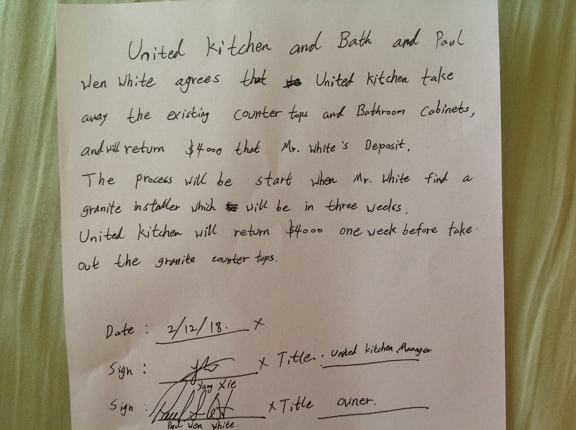 United kitchen and Bath and Paul
Wen White agrees that United kitchen take
away the existing counter tops and Bathroom Cabinets,
and will return $4000 that Mr. White's Deposit.
The process will be start when Mr. White find a
granite installer which will be in three weeks.
United kitchen will return $4000 one week before take
out the granite counter tops.
Date: 2/12/18. X
Sign: X Title: United kitchen Manager
Yang Xie
Sign: X Title owner.
Paul Wen White.